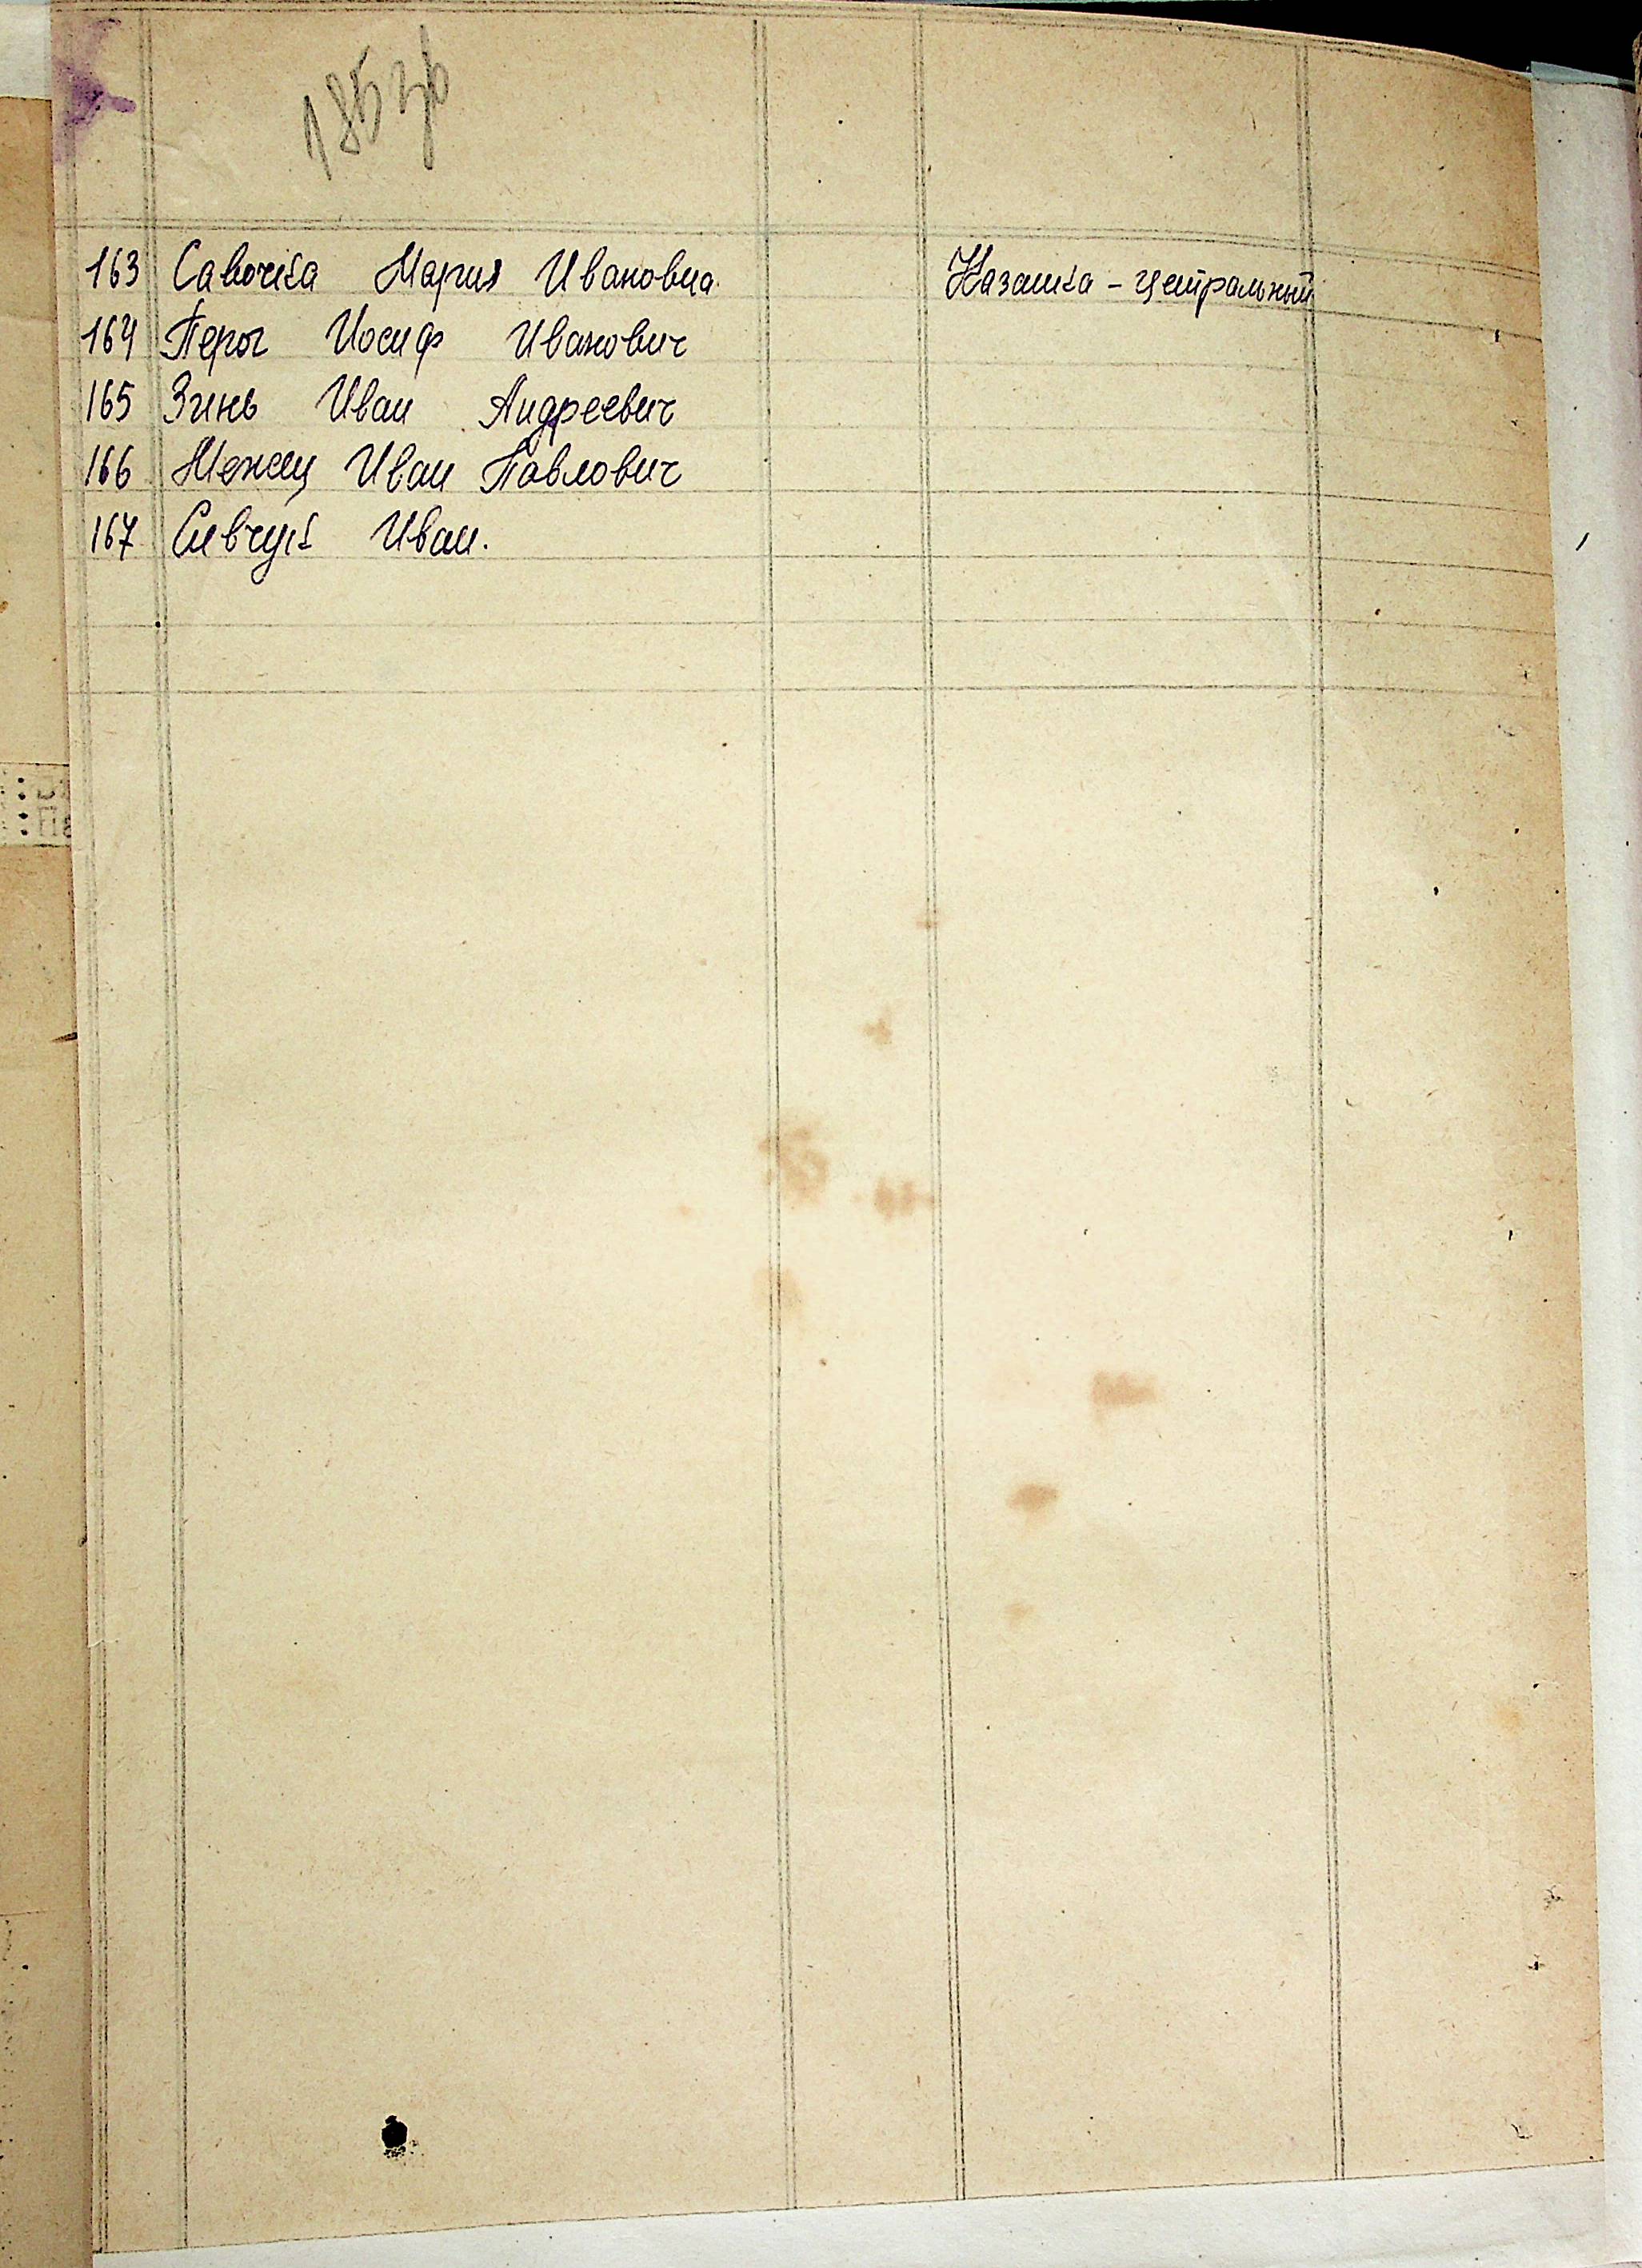 185 зв
163 Савочка Мария Ивановна. Казанка - Центральный
164 Перог Иосиф Иванович
165 Зинь Иван Андреевич
166 Иван Павлович
167 Сивчук Иван.